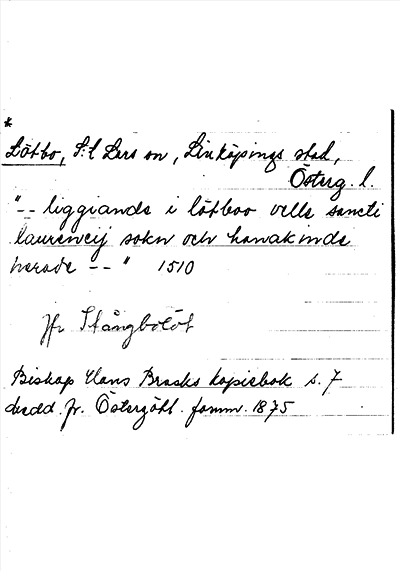 *
Lötbo, S:t Lars sn, Linköpings stad,
Österg. l.
"-- liggiande i lötboo vells sancti
laurencij sokn och hanakinds
herade --" 1510
Jfr Stångbolöt
Biskop Hans Brasks kopiebok s. 7
Medd. fr. Östergötl. fornm. 1875